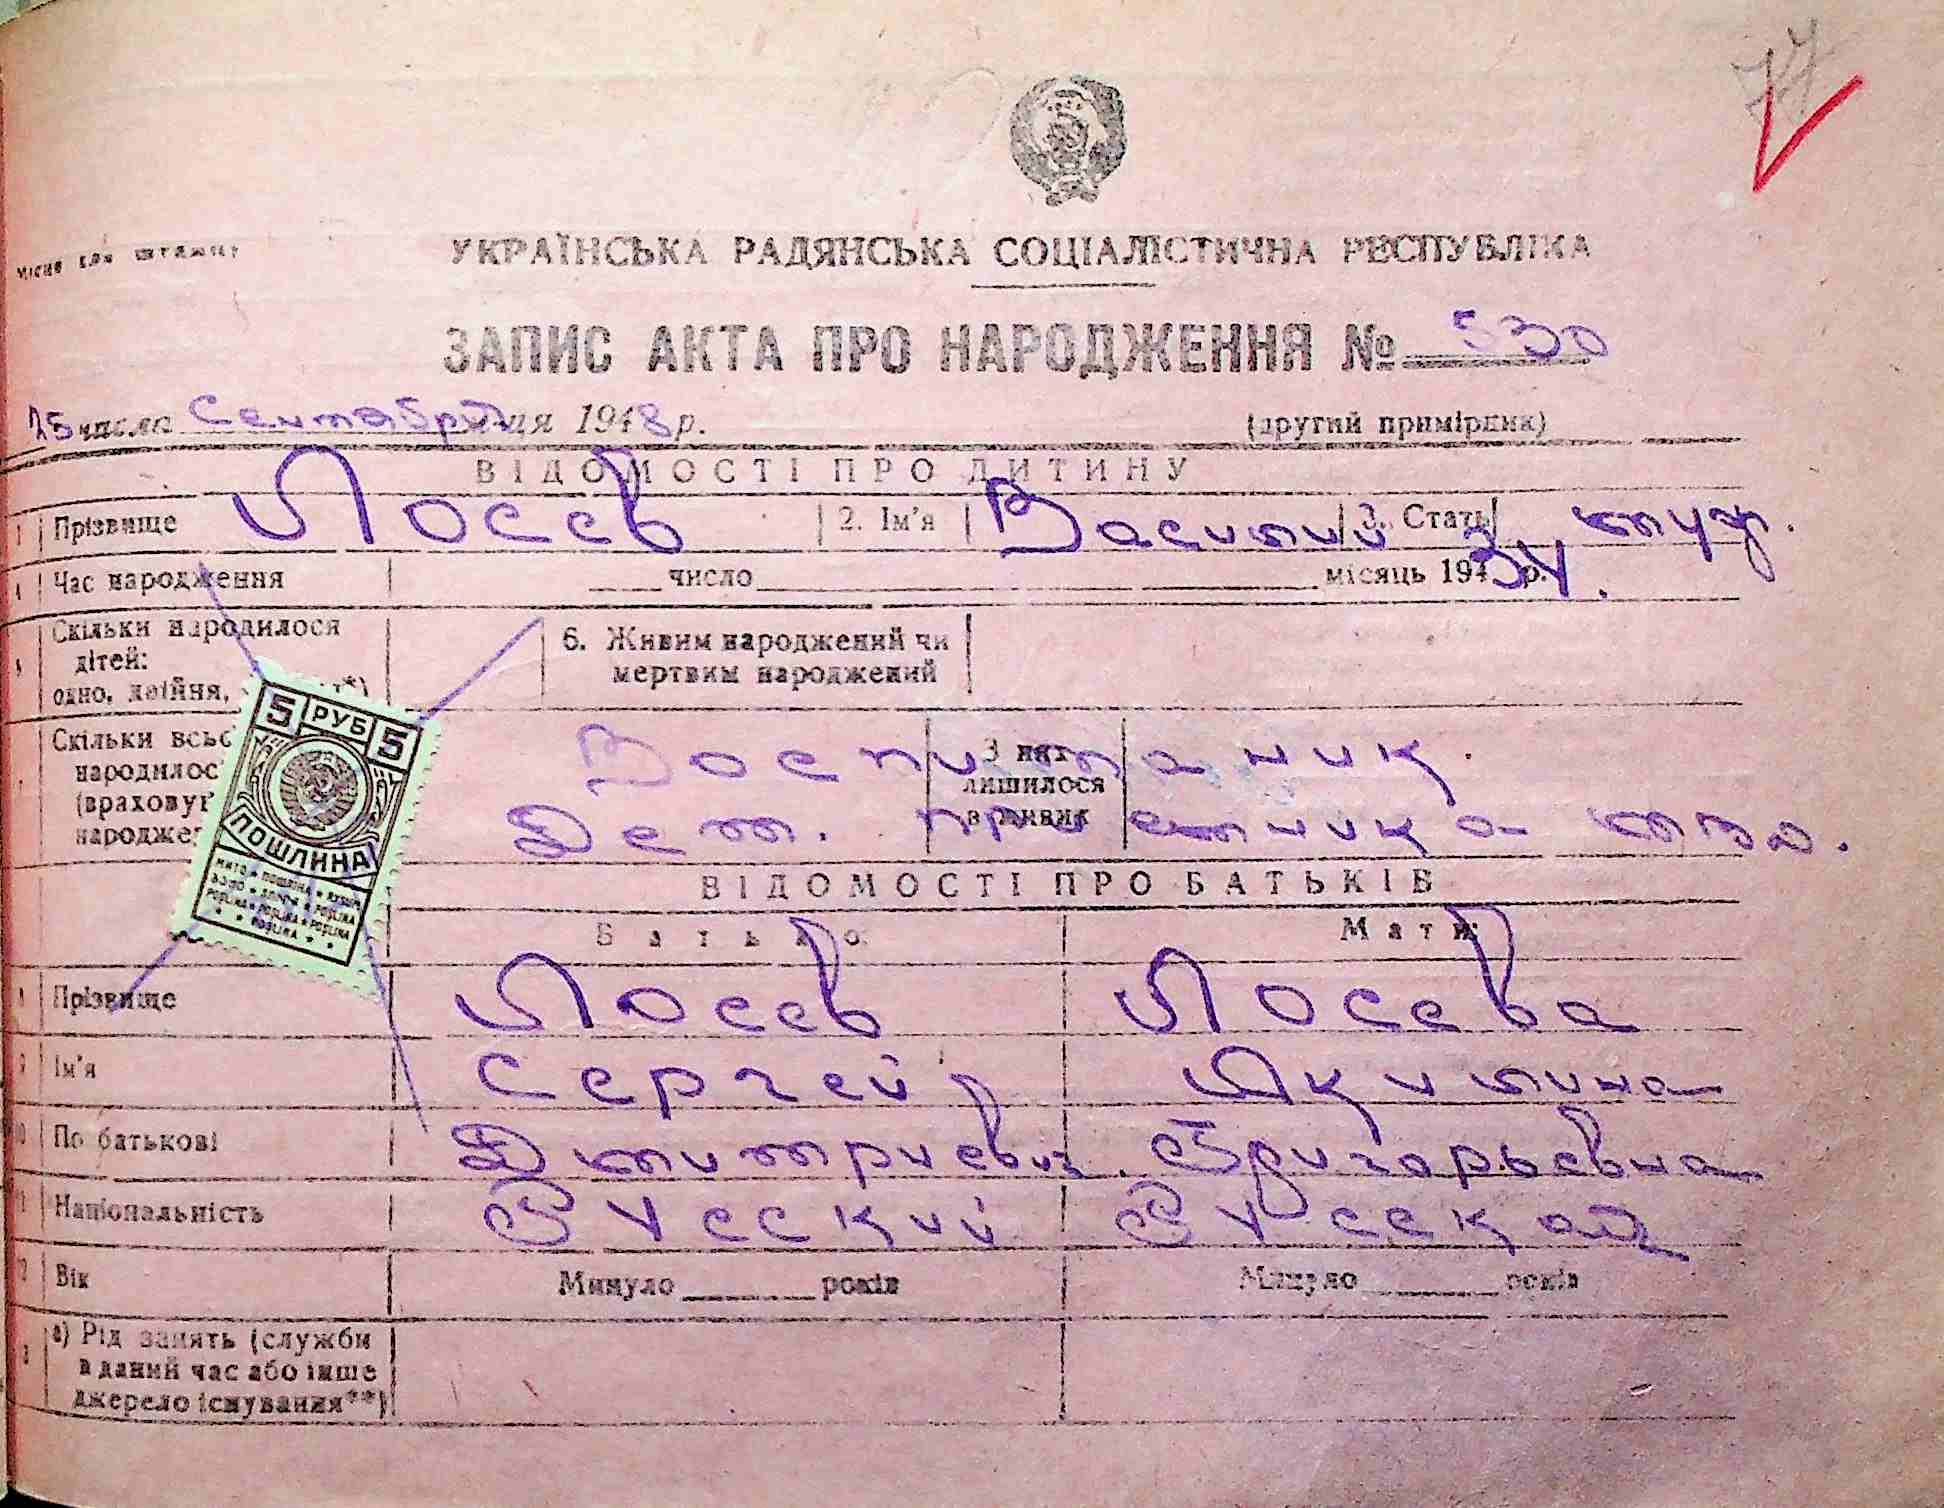 77
Місце для штампу
УКРАЇНСЬКА РАДЯНСЬКА СОЦІАЛІСТИЧНА РЕСПУБЛІКА
ЗАПИС АКТА ПРО НАРОДЖЕННЯ № 530
25 числа Сентября ця 1948 р. (другий примірник)
ВІДОМОСТІ ПРО ДИТИНУ
1 Прізвище Лосев 2. Ім'я Василий 3. Стать муж.
4 Час народження число місяць 1934 р.
5 Скільки народилося дітей: одно, двійня, 6. Живим народжений чи мертвим народжений
Скільки всьо народилос (враховую народже Воспитаник З них лишилося в живих
Дет. приемника мвд.
5 РУБ 5
ПОШЛИНА
ВІДОМОСТІ ПРО БАТЬКІВ
Батько: Мати:
8 Прізвище Лосев Лосева
9 Ім'я Сергей Акилина
10 По батькові Дмитриевич. Григорьевна
11 Національність Русский Русская
12 Вік Минуло років Минуло років
13 а) Рід занять (служби
в даний час або інше
джерело існування**)